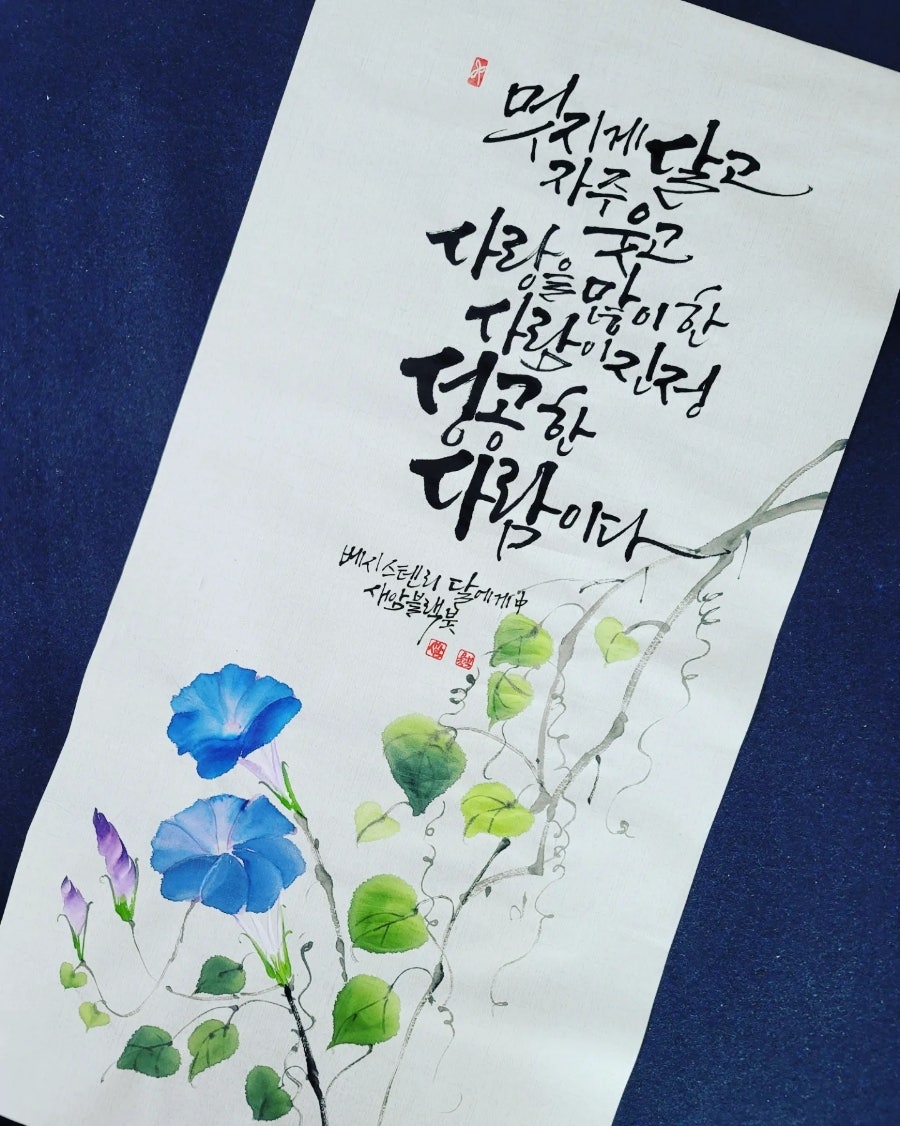 멋지게 살고
자주 웃고
사랑을 많이 한
사람이 진정
성공한
사람이다
베시스텐리 달에게中
새암블랙붓